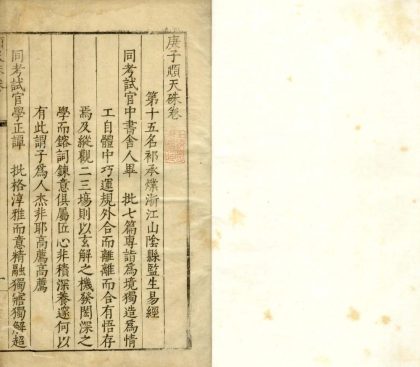 庚子順天硃卷
第十五名祁承㸁浙江山陰縣監生易經
同考試官中書舍人畢　批七篇專詣爲境獨造爲情
工自體中巧運規外合而離離而合有悟存
焉及縱觀二三場則以玄解之機發閎深之
學而鎔詞鍊意俱屬匠心非積深養邃何以
有此謂子爲人杰非耶高薦高薦
同考試官學正譚　批格淳雅而意精融獨觧獨解超